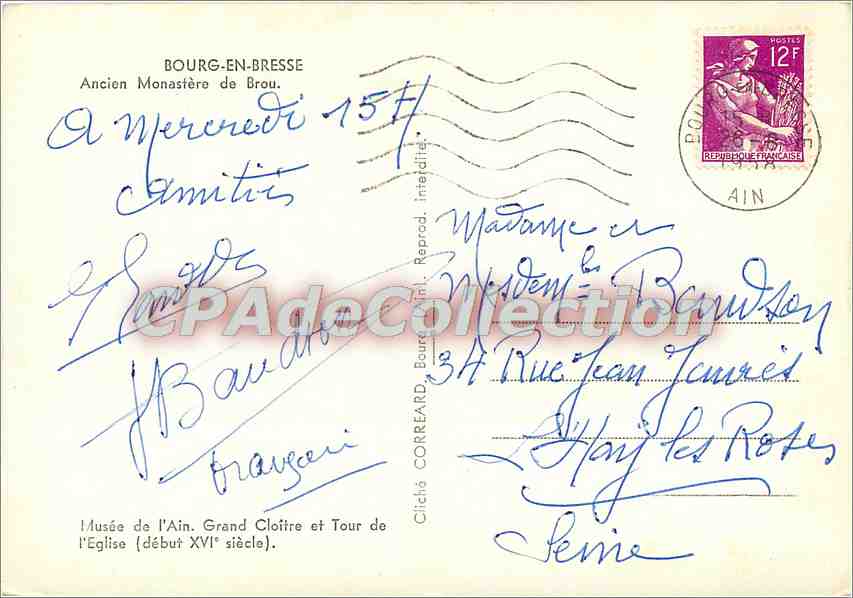 BOURG-EN-BRESSE
Ancien Monastère de Brou.
A Mercredi 15 H
amitiés
Baudson
Musée de l'Ain. Grand Cloître et Tour de
l'Eglise (début XVIe siècle).
Cliché CORREARD, Bourg (Ain). Reprod. interdite.
POSTES
12F
REPUBLIQUE FRANÇAISE
BOURG-EN-BRESSE
1958
AIN
Madame et
Mesdemlles Baudson
34 Rue Jean Jaurès
L'Haÿ les Roses
Seine
CPAdeCollection.com